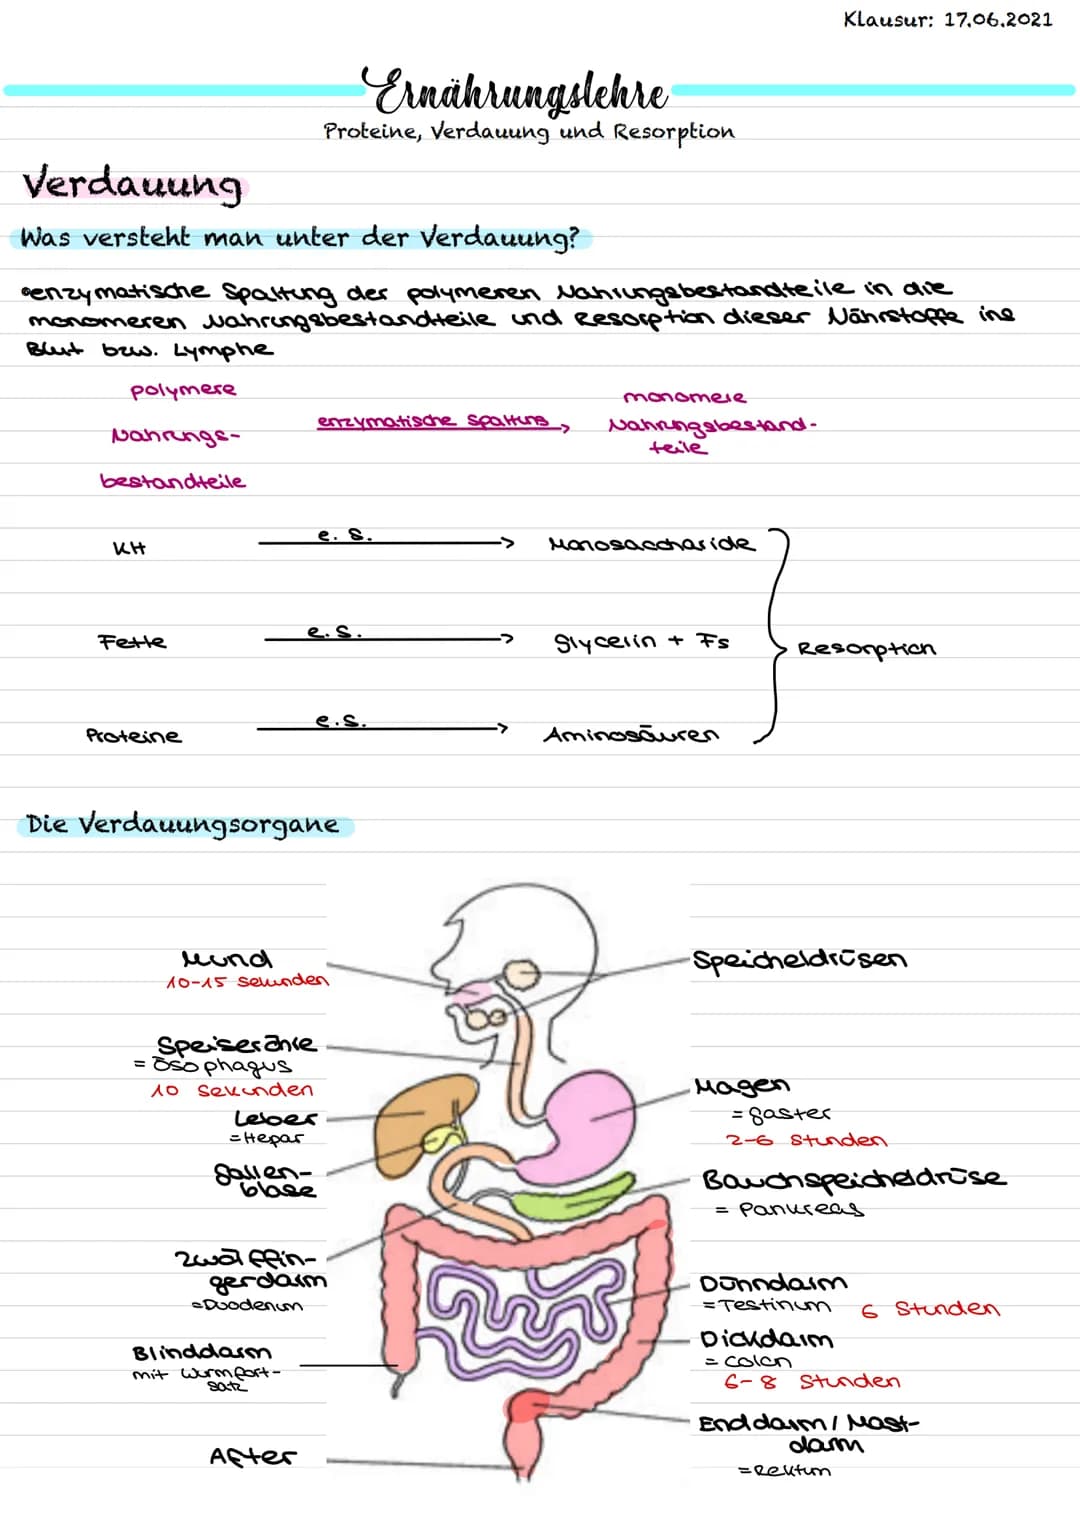 Klausur: 17.06.2021
Ernährungslehre
Proteine, Verdauung und Resorption
Verdauung
Was versteht man unter der Verdauung?
•enzymatische Spaltung der polymeren Nahrungsbestandteile in die
monomeren Nahrungsbestandteile und Resorption dieser Nährstoffe ins
Blut bzw. Lymphe
polymere
Nahrungs-
bestandteile
enzymatische Spaltung
monomere
Nahrungsbestand-
teile
KH
e. S.
Monosaccharide
Fette
e.S.
Glycerin + FS
Resorption
Proteine
e.S.
Aminosäuren
Die Verdauungsorgane
Mund
10-15 Sekunden
Speiseröhre
= Ösophagus
10 Sekunden
Leber
=Hepar
Gallen-
blase
Zwölffin-
gerdarm
=Duodenum
Blinddarm
mit Wurmfort-
satz
After
Speicheldrüsen
Magen
=Gaster
2-6 Stunden
Bauchspeicheldrüse
= Pankreas
Dünndarm
=Testinum 6 Stunden
Dickdarm
= Colon
6-8 Stunden
Enddarm/Mast-
darm
=Rektum